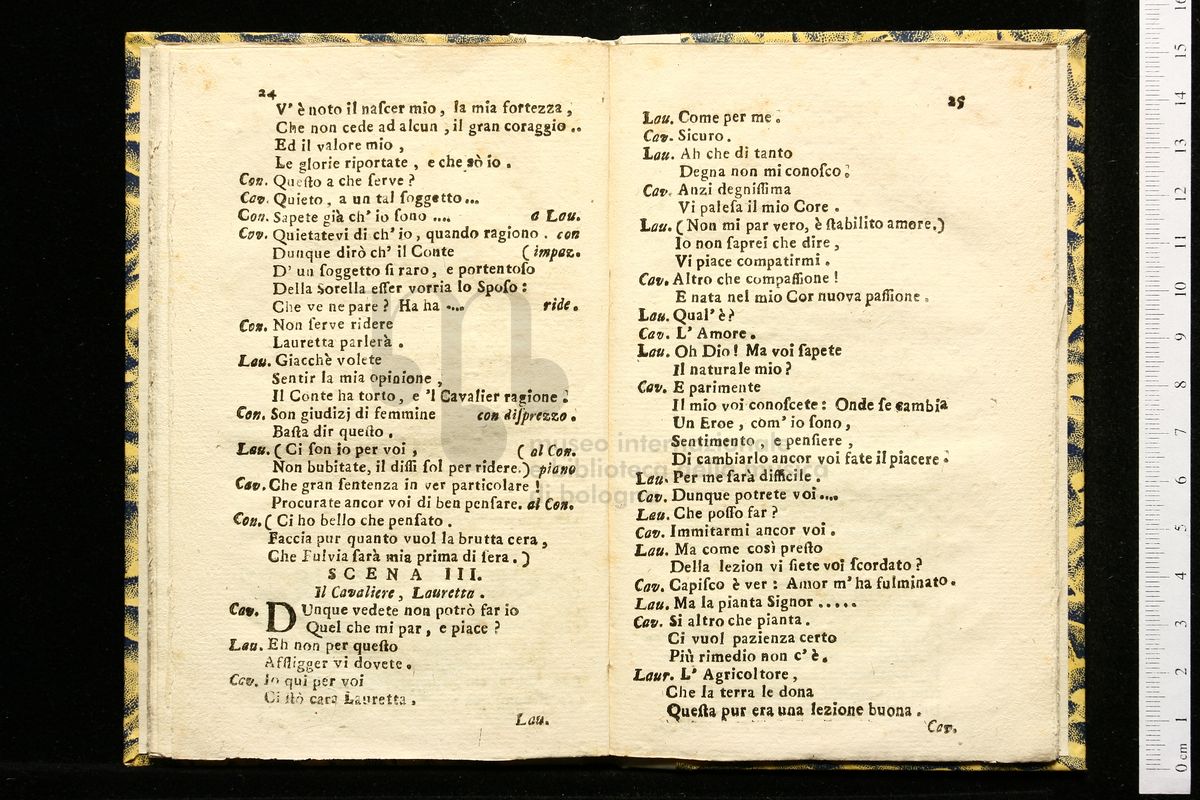 24
V' è noto il naſcer mio, la mia fortezza,
Che non cede ad alcun, il gran coraggio..
Ed il valore mio,
Le glorie riportate, e che sò io.
Con. Queſto a che ſerve?
Cav. Quieto, a un tal ſoggetto...
Con. Sapete già ch' io ſono .... a Lau.
Cav. Quietatevi di ch' io, quando ragiono. con
Dunque dirò ch' il Conte (impaz.
D' un ſoggetto ſi raro, e portentoſo
Della Sorella eſſer vorria lo Spoſo:
Che ve ne pare? Ha ha .... ride.
Con. Non ſerve ridere
Lauretta parlerà.
Lau. Giacchè volete
Sentir la mia opinione,
Il Conte ha torto, e 'l Cavalier ragione.
Con. Son giudizj di femmine con diſprezzo.
Baſta dir queſto.
Lau. (Ci ſon io per voi, (al Con.
Non bubitate, il diſſi ſol per ridere.) piano
Cav. Che gran ſentenza in ver particolare!
Procurate ancor voi di ben penſare. al Con.
Con. (Ci ho bello che penſato.
Faccia pur quanto vuol la brutta cera,
Che Fulvia ſarà mia prima di ſera.)
SCENA III.
Il Cavaliere, Lauretta.
Cav. DUnque vedete non potrò far io
Quel che mi par, e piace?
Lau. Eh non per queſto
Affligger vi dovete.
Cav. Io qui per voi
Ci ſtò cara Lauretta.
Lau.
25
Lau. Come per me.
Cav. Sicuro.
Lau. Ah che di tanto
Degna non mi conoſco.
Cav. Anzi degniſſima
Vi paleſa il mio Core.
Lau. (Non mi par vero, è ſtabilito amore.)
Io non ſaprei che dire,
Vi piace compatirmi.
Cav. Altro che compaſſione!
E nata nel mio Cor nuova paſſione.
Lau. Qual' è?
Cav. L' Amore.
Lau. Oh Dio! Ma voi ſapete
Il naturale mio?
Cav. E parimente
Il mio voi conoſcete: Onde ſe cambia
Un Eroe, com' io ſono,
Sentimento, e penſiere,
Di cambiarlo ancor voi fate il piacere.
Lau. Per me ſarà difficile.
Cav. Dunque potrete voi....
Lau. Che poſſo far?
Cav. Immitarmi ancor voi.
Lau. Ma come così preſto
Della lezion vi ſiete voi ſcordato?
Cav. Capiſco è ver: Amor m' ha fulminato.
Lau. Ma la pianta Signor .....
Cav. Si altro che pianta.
Ci vuol pazienza certo
Più rimedio non c' è.
Laur. L' Agricoltore,
Che la terra le dona
Queſta pur era una lezione buona.
Cav.
museo internazionale
e biblioteca della musica
di bologna
0 cm 1 2 3 4 5 6 7 8 9 10 11 12 13 14 15 16